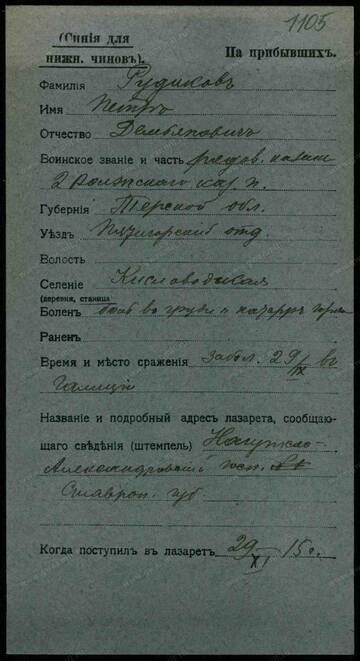 1105
(Синія для
нижн. чиновъ).
На прибывшихъ.
Фамилія Рудиковъ
Имя Петръ
Отчество Демьяновичъ
Воинское званіе и часть рядов. казакъ
2 Волжскаго каз. п.
Губернія Терской обл.
Уѣздъ Пятигорскій отд.
Волость
Селеніе Кисловодская
(деревня, станица)
Боленъ боль въ груди и катарръ горла
Раненъ
Время и мѣсто сраженія забол. 29/IX въ
Галиціи
Названіе и подробный адресъ лазарета, сообщаю-
щаго свѣдѣнія (штемпель) Нагутско-
Александровскій госп.
Ставроп. губ.
Когда поступилъ въ лазаретъ 29/XI 15 г.